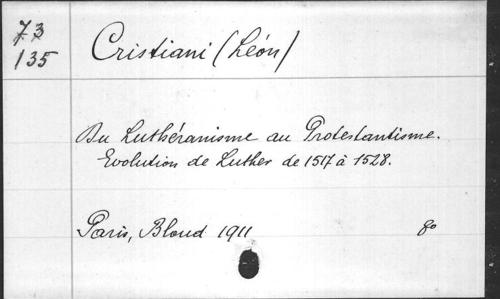 73
135
Cristiani (Léon)
Du Luthéranisme au Protestantisme.
Evolution de Luther de 1517 à 1528.
Paris, Bloud 1911 8º